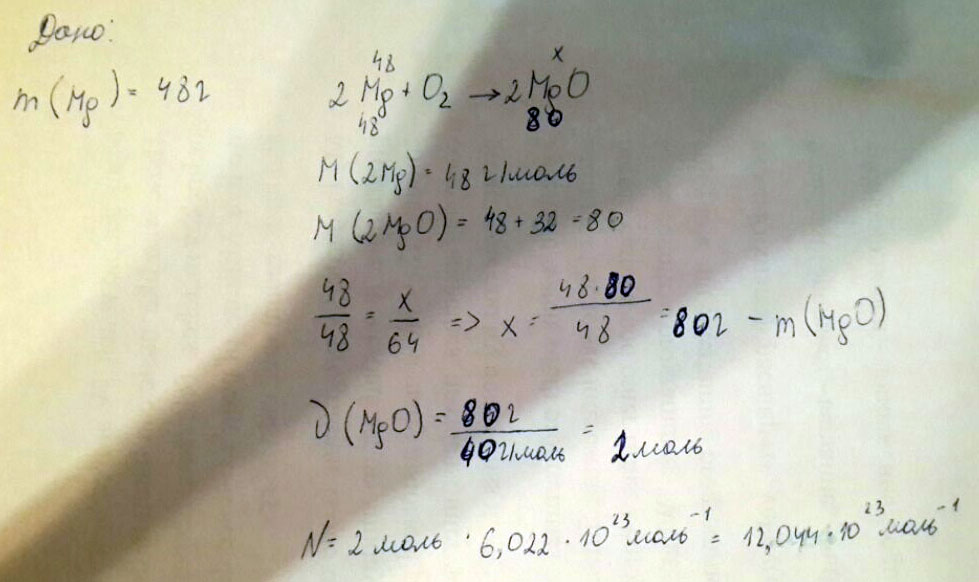 Дано:
m(Mg) = 48г
48 x
2Mg + O₂ → 2MgO
48 80
M(2Mg) = 48 г/моль
M(2MgO) = 48 + 32 = 80
48/48 = x/64 => x = 48·80/48 = 80г - m(MgO)
ν(MgO) = 80г/40г/моль = 2моль
N = 2 моль · 6,022 · 10²³моль⁻¹ = 12,044·10²³моль⁻¹